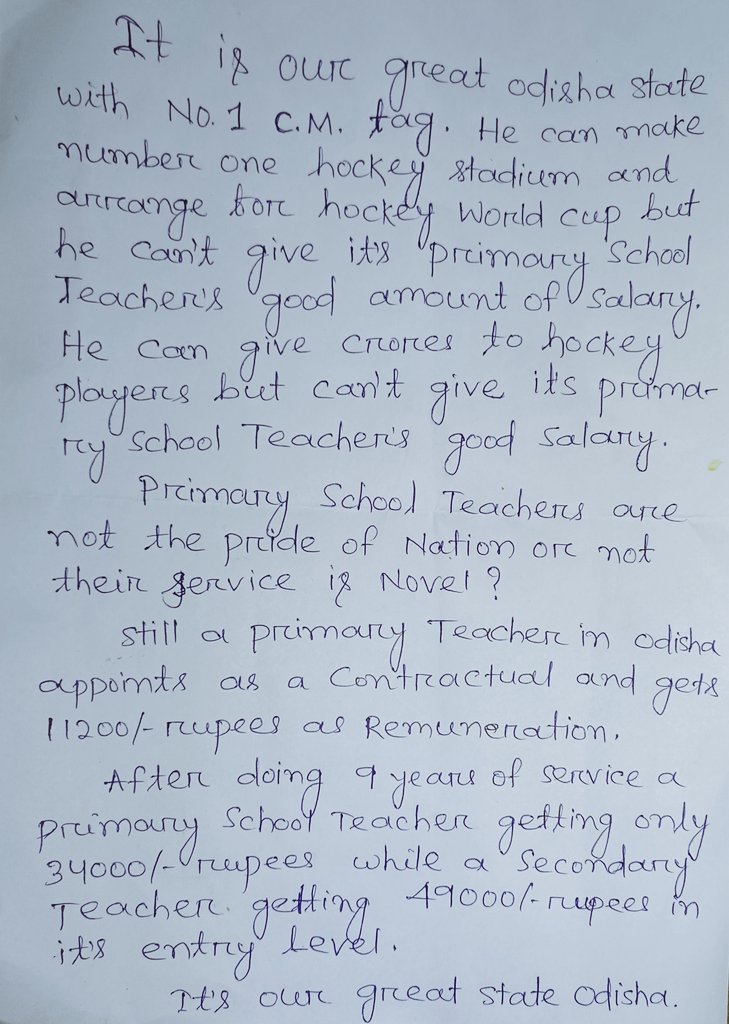 It is our great odisha state
with No. 1 C.M. tag. He can make
number one hockey stadium and
arrange for hockey World cup but
he can't give it's primary School
Teacher's good amount of salary.
He can give crores to hockey
players but can't give its prima-
ry school Teacher's good salary.
Primary School Teachers are
not the pride of Nation or not
their service is Novel?
still a primary Teacher in odisha
appoints as a Contractual and gets
11200/- rupees as Remuneration.
After doing 9 years of service a
primary School Teacher getting only
34000/- rupees while a Secondary
Teacher getting 49000/- rupees in
it's entry level.
It's our great state Odisha.